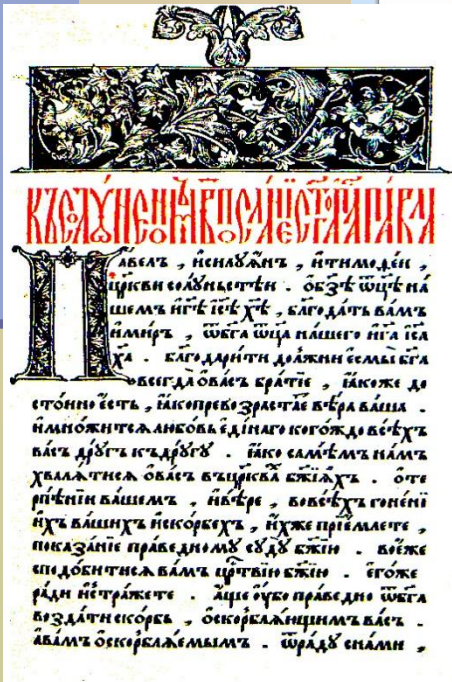 КЪСОЛꙊНЕѠМЪ В҃ ПОСЛАНЇЕ СТ҃ГО АП҃ЛА ПАВЛА
Па́велъ , и҆силꙋа́нъ , и҆тимоѳе́и ,
цр҃кви солꙋньстѣи . ѡ҆бз҃ѣ ѿц҃ѣ на́
шемъ и҆г҃ѣ і҆с҃ѣ хс҃ѣ , бл҃года́ть ва́мъ
и҆ми́ръ , ѿбг҃а ѿц҃а на́шего и҆г҃а і҆с҃а
ха҃ . бл҃годари́ти до́лжни є҆смы̀ бг҃а
всегда̀ ѡ҆ва́съ бра́тїе , ꙗ҆́коже до
сто́инно є҆́сть , ꙗ҆́копрево зраста́е вѣ́ра ва́ша .
и҆мно́житсѧ любо́вь є҆ди́наго кого́ждо всѣ́хъ
ва́съ дрꙋ́гъ къдрꙋ́гꙋ . ꙗ҆́ко самѣ́мъ на́мъ
хвали́тисѧ ѡ҆ва́съ въцр҃ква бж҃їѧхъ . ѡ҆те
рпѣ́нїи ва́шемъ , и҆вѣ́ре , вовсѣ́хъ гоне́нї
и҆хъ ва́шихъ и҆ско́рбехъ , и҆́хже прїе́млете ,
показа́нїе пра́ведномꙋ сꙋдꙋ̀ бж҃їю . воє҆́же
сподо́битисѧ ва́мъ цр҃твїю бж҃їю . є҆го́же
ра́ди и҆стра́жете . а҆́ще ᲂу҆́бо пра́ведно ѿбг҃а
возда́ти ско́рбь , ѡ҆скорблѧ́ющимъ ва́съ .
а҆ва́мъ ѡ҆скорблѧ́емымъ . ѿра́дꙋ сна́ми ,